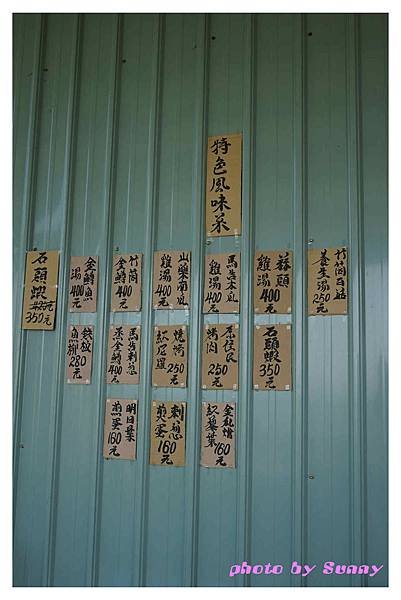 特色風味菜
竹筒百菇
養生湯
250元
蒜頭
雞湯
400元
馬告木瓜
雞湯
400元
山藥南瓜
雞湯
400元
竹筒
金鱒
400元
金鱒魚
湯
400元
石頭蝦
350元
石頭蝦
350元
原住民
烤肉
250元
燒烤
紅尼羅
250元
馬告刺蔥
蒸金鱒
400元
魚柳
280元
金瓜燴
紅藜葉
160元
刺蔥
煎蛋
160元
明日葉
煎蛋
160元
photo by Sunny